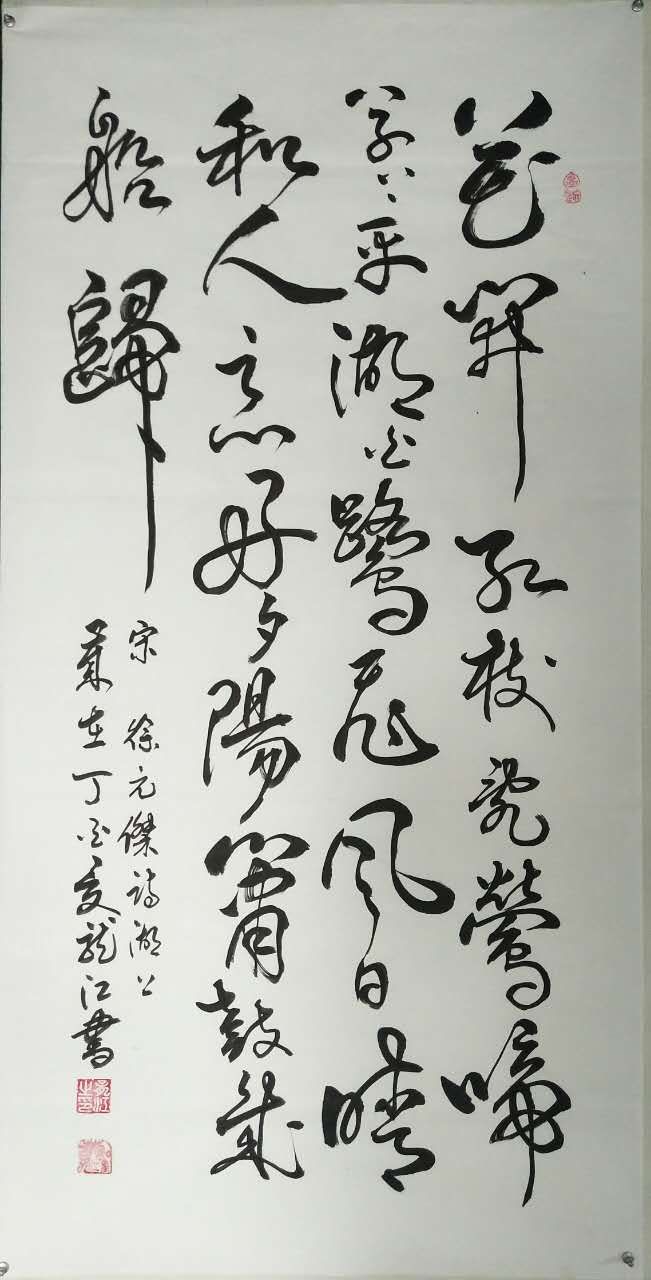 花開紅枝亂鶯啼
草長平湖白鷺飛風日晴
和人意好夕陽簫鼓幾
船歸
宋 徐元傑詩湖上
歲在丁酉夏龍江書